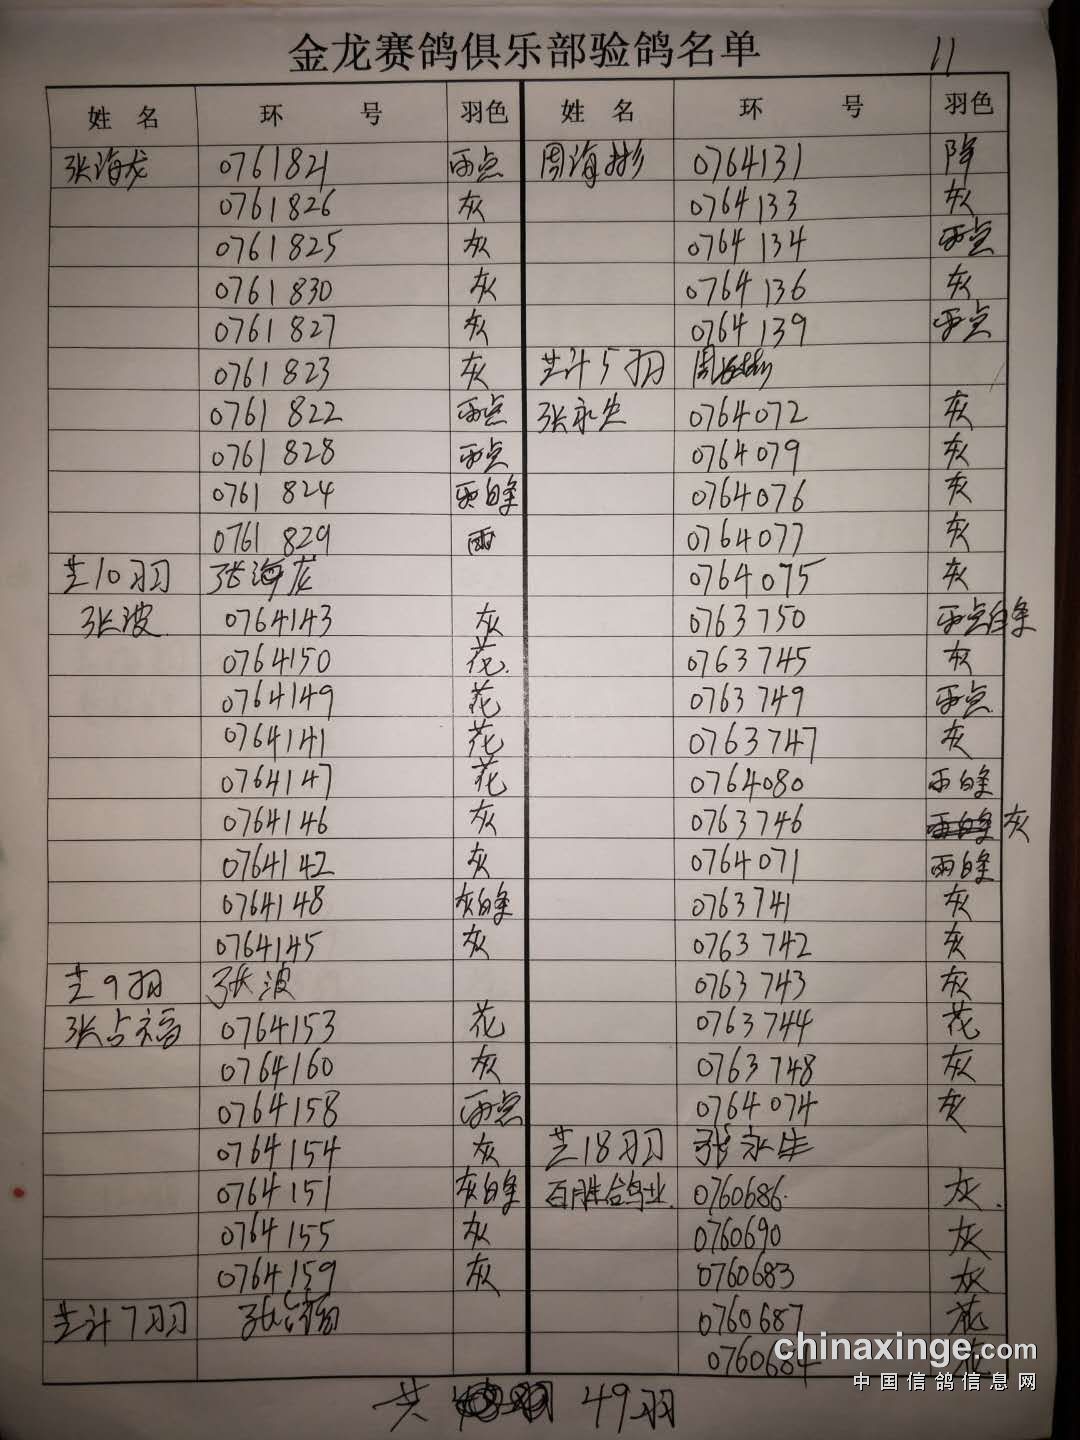 金龙赛鸽俱乐部验鸽名单
11
姓 名 环 号 羽色
张海龙 0761821 雨点
0761826 灰
0761825 灰
0761830 灰
0761827 灰
0761823 灰
0761822 雨点
0761828 雨点
0761824 雨白条
0761829 雨
共10羽 张海龙
张波 0764143 灰
0764150 花
0764149 花
0764141 花
0764147 花
0764146 灰
0764142 灰
0764148 灰白条
0764145 灰
共9羽 张波
张占福 0764153 花
0764160 灰
0764158 雨点
0764154 灰
0764151 灰白条
0764155 灰
0764159 灰
共计7羽 张占福
姓 名 环 号 羽色
周海彬 0764131 降
0764133 灰
0764134 雨点
0764136 灰
0764139 雨点
共计5羽 周海彬
张永生 0764072 灰
0764079 灰
0764076 灰
0764077 灰
0764075 灰
0763750 雨点白条
0763745 灰
0763749 雨点
0763747 灰
0764080 雨白条
0763746 雨白条 灰
0764071 雨白条
0763741 灰
0763742 灰
0763743 灰
0763744 花
0763748 灰
0764074 灰
共18羽 张永生
百胜鸽业 0760686 灰
0760690 灰
0760683 灰
0760687 花
0760684 花
共 49羽
chinaxinge.com
中国信鸽信息网